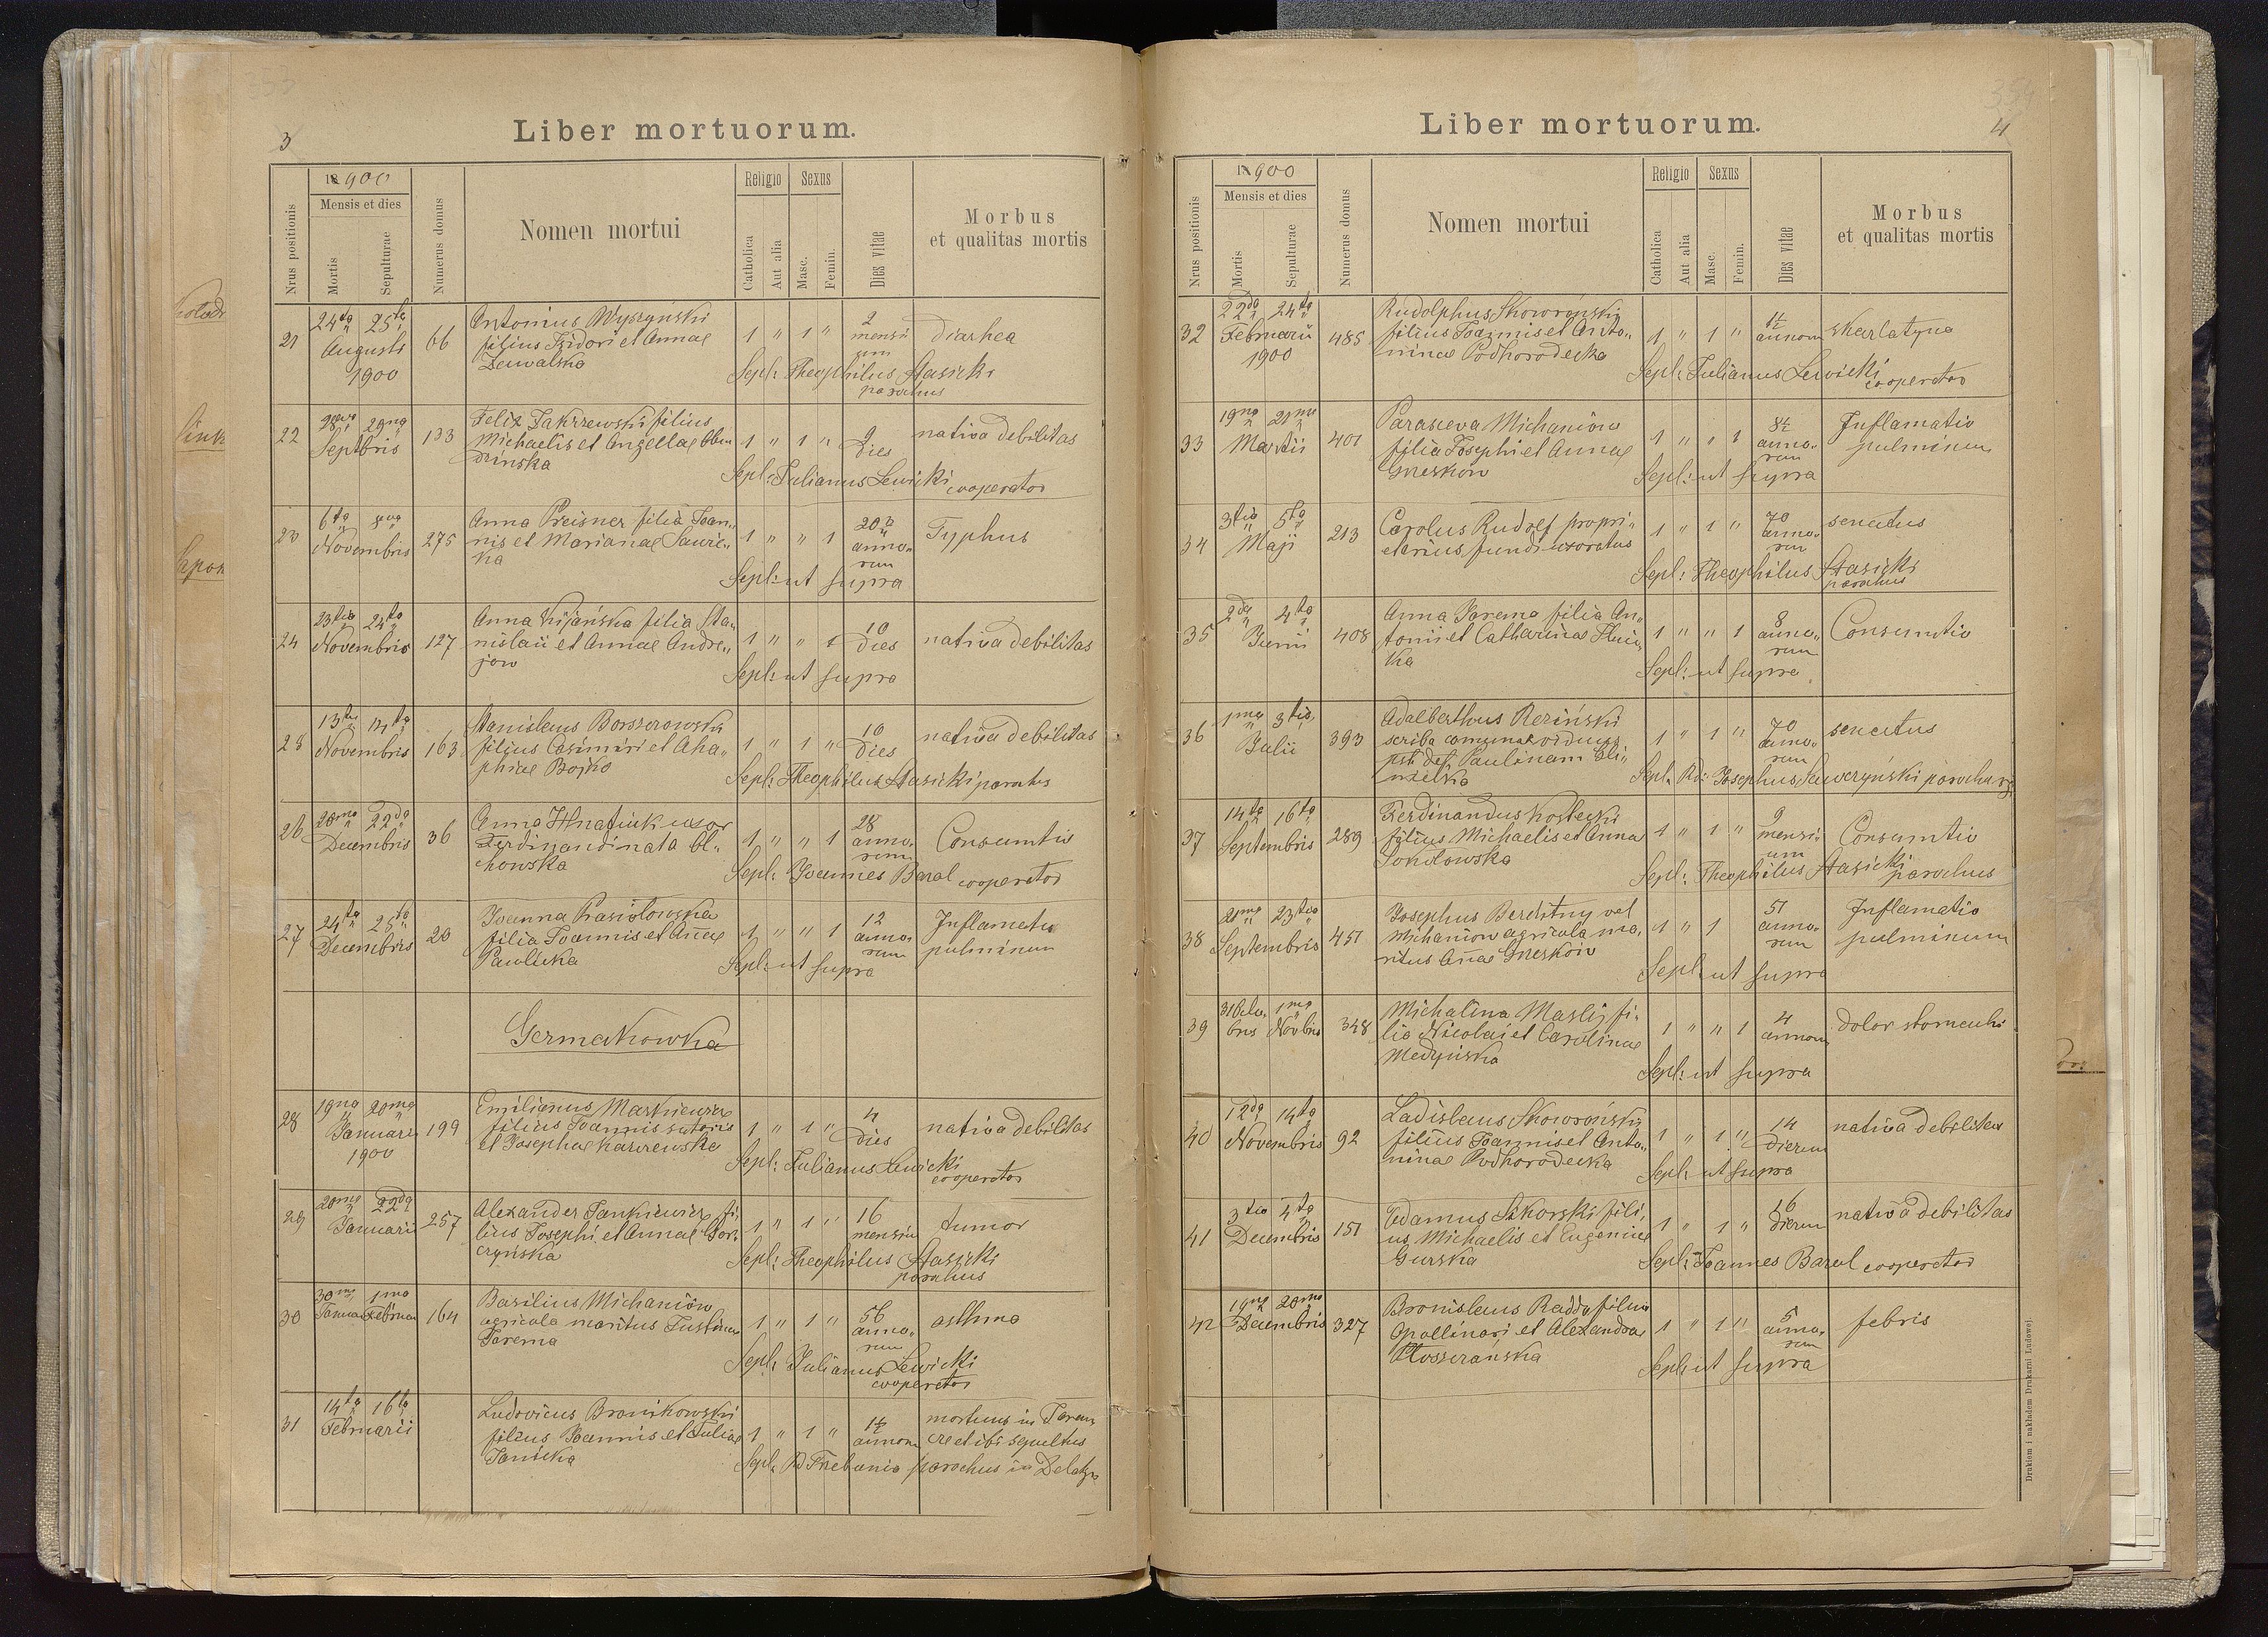 3
Liber mortuorum.
1900
Mensis et dies
Nrus positionis
Mortis
Sepulturae
Numerus domus
Nomen mortui
Religio
Catholica
Aut alia
Sexus
Masc.
Femin.
Dies vitae
Morbus
et qualitas mortis
21 24ta 25ta Augusti 1900 66
Antonius Wyszyński
filius Isidori et Annae
1 " 1 " 2 mensi um diarhea
Sepl: Theophilus Stasicki
parochus
22 29na Septbris 133
Felix Zakrzewski filius
Michaelis et Angellae
1 " 1 " 9 Dies nativa debilitas
Sepl: Julianus Lewicki cooperator
23 6ta 8va Novembris 275
Anna Preisner filia Joan„
nis et Marianae Sawic„
ka
1 " " 1 20 anno„ rum Typhus
Sepl: ut supra
24 23tia 24ta Novembris 127
Anna Kijańska filia Sta„
nislaii et Annae Andre„
jow
1 " " 1 10 Dies nativa debilitas
Sepl: ut supra
25 13tia 14ta Novembris 163
Stanislaus
filius Casimiri et Aha„
phiae Bojko
1 " 1 " 10 Dies nativa debilitas
Sepl: Theophilus Stasicki parochus
26 20ma 22da Decembris 36
Anna Hnatiuk uxor
Ferdinandi nata Ol„
chowska
1 " " 1 28 anno„ rum Consumtio
Sepl: Joannes Baral cooperator
27 24ta 25ta Decembris 20
Joanna
filia Joannis et Anae
Pawlicka
1 " " 1 12 anno„ rum Inflamatio
pulminum
Sepl: ut supra
Germakowka
28 19na 20ma Januarii 1900 199
Emilianus Markiewicz
filius Joannis sutoris
et Josephae Karczewska
1 " 1 " 4 Dies nativa debilitas
Sepl: Julianus Lewicki
cooperator
29 20ma 22da Januarii 257
Alexander Jankiewicz fi„
lius Josephi et Annae Gor„
czyńska
1 " 1 " 16 mensiu tumor
Sepl: Theophilus Stasicki
parochus
30 30ma 1ma Januar Februar 164
Basilius Michaniów
agricola maritus Justinae
Jarema
1 " 1 " 56 anno„ rum asthma
Sepl: Julianus Lewicki
cooperator
31 14ta 16ta Februarii
Ludovicus Bronikowski
filius Joannis et Juliae
Janicka
1 " 1 " 14 annorum mortuus in
et ibi sepultus
Sepl: parochus in
4
Liber mortuorum.
1900
Mensis et dies
Nrus positionis
Mortis
Sepulturae
Numerus domus
Nomen mortui
Religio
Catholica
Aut alia
Sexus
Masc.
Femin.
Dies vitae
Morbus
et qualitas mortis
32 22da 24ta Februarii 1900 485
Rudolphus Skowroński
filius Joannis et Anto„
ninae Podhorodecka
1 " 1 " annorum skarlatyna
Sepl: Julianus Lewicki
cooperator
33 19na 21ma Martii 401
Parasceva Michaniów
filia Josephi et Annae
Greskow
1 " " 1 84 anno„ rum Inflamatio
pulminum
Sepl: ut supra
34 3tia 5ta Maji 213
Carolus Rudolf propri„
etarius fundi uxoratus
1 " 1 " 70 anno„ rum senectus
Sepl: Theophilus Stasicki
parochus
35 2da 4ta Junii 408
Anna Jarema filia An„
tonii et Catharinae
1 " " 1 8 anno„ rum Consumtio
Sepl: ut supra
36 1ma 3tia Julii 393
Adalberthus Reziński
scriba viduus
Paulinam
1 " 1 " 70 anno„ rum senectus
Sepl: Josephus parochus
37 14ta 16ta Septembris 289
Ferdinandus Kostecki
filius Michaelis et Anna
Sokolowska
1 " 1 " 9 mensi um Consumtio
Sepl: Theophilus Stasicki
parochus
38 21ma 23tia Septembris 451
Josephus Berditny vel
Michaniow agricola ma„
ritus Anae Greskow
1 " 1 51 anno„ rum Inflamatio
pulminum
Sepl: ut supra
39 31 Octo„ bris 1ma Novbris 348
Michalina Maslij fi„
lia Nicolai et Carolinae
Medyńska
1 " " 1 4 annorum dolor stomachi
Sepl: ut supra
40 12da 14ta Novembris 92
Ladislaus Skowroński
filius Joannis et Anto„
ninae Podhorodecka
1 " 1 " 14 Dierum nativa debilitas
Sepl: ut supra
41 3tia 4ta Decembris 151
Adamus Sikorski fili„
us Michaelis et Eugeniae
Gurska
1 " 1 " 16 Dierum nativa debilitas
Sepl: Joannes Baral cooperator
42 19na 20ma Decembris 327
Bronislaus Radda filius
Apollinari et Alexandrae
1 " 1 " 5 anno„ rum febris
Sepl: ut supra
Drukiem i nakładem Drukarni Ludowej.